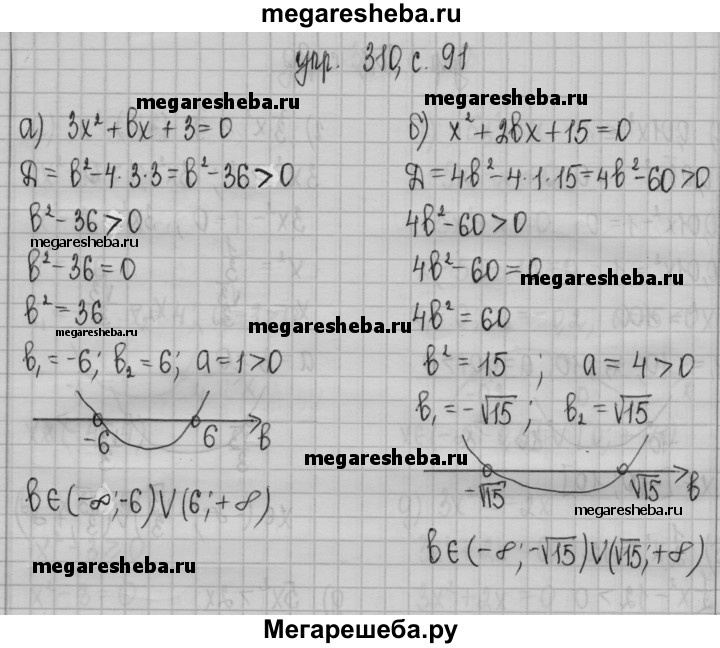 megaresheba.ru
упр. 310, с. 91
megaresheba.ru
megaresheba.ru
а) 3x² + bx + 3 = 0
Д = b² - 4 · 3 · 3 = b² - 36 > 0
b² - 36 > 0
megaresheba.ru
b² - 36 = 0
b² = 36
megaresheba.ru
b₁ = -6; b₂ = 6; a = 1 > 0
-6 6 b
b ∈ (-∞; -6) ∪ (6; +∞)
megaresheba.ru
б) x² + 2bx + 15 = 0
Д = 4b² - 4 · 1 · 15 = 4b² - 60 > 0
4b² - 60 > 0
4b² - 60 = 0
megaresheba.ru
megaresheba.ru
4b² = 60
b² = 15 ; a = 4 > 0
b₁ = -√15 ; b₂ = √15
megaresheba.ru
-√15 √15 b
megaresheba.ru
b ∈ (-∞; -√15) ∪ (√15; +∞)
Мегарешеба.ру